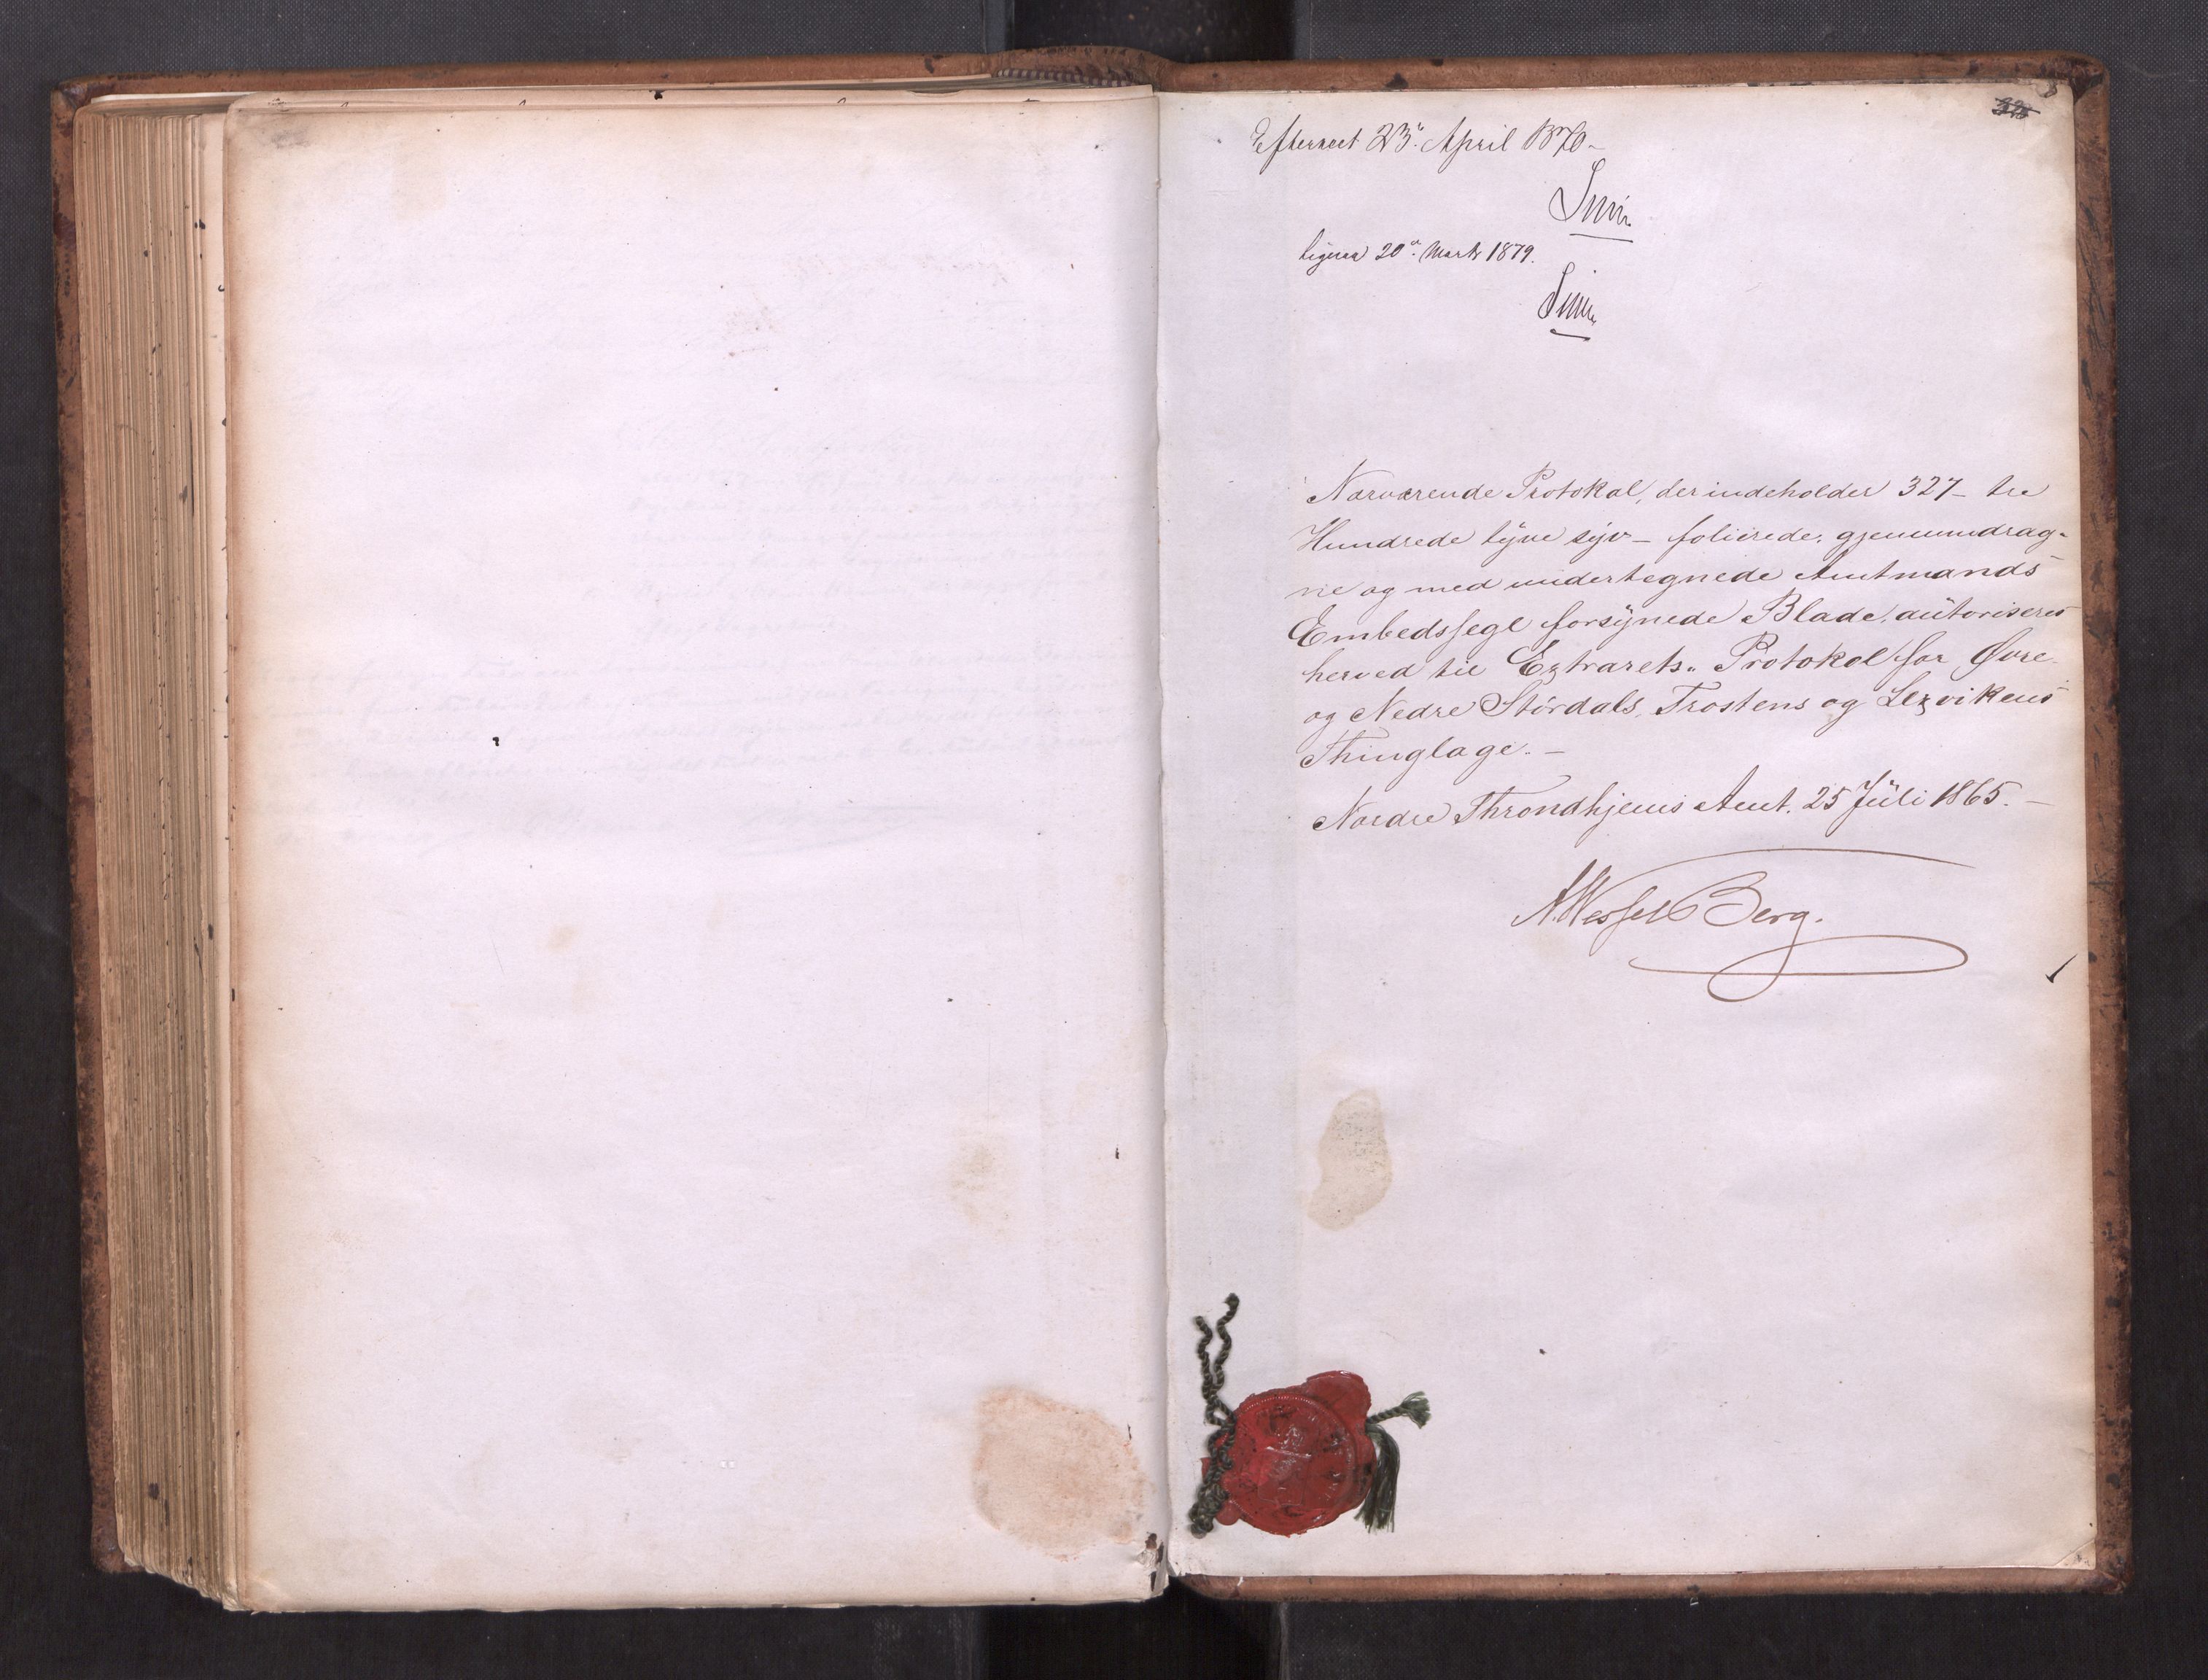 Efterseet 23de April 1876 –
ligesaa 20de Marts 1879.
Nærværende Protokol, der indeholder 327 – tre
Hundrede tyve syv – foliirede, gjennemdrag-
ne og med undertegnede Amtmands
Embedssegl forsynede Blade, autoriseres
herved til Extrarets-Protokol for Øvre-
og Nedre Stördals, Frostens og Lexvikens
Thinglage. –
Nordre Throndhjems Amt, 25 Juli 1865. –
A. Wessel Berg.